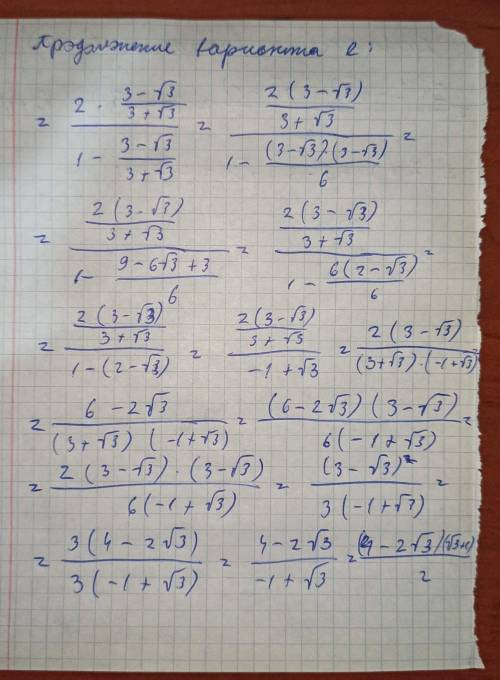 Продолжение варианта 2:
= (2 · (3-√3)/(3+√3)) / (1 - (3-√3)/(3+√3)) = (2(3-√3)/(3+√3)) / (1 - (3-√3)·(3-√3)/6) =
= (2(3-√3)/(3+√3)) / (1 - (9-6√3+3)/6) = (2(3-√3)/(3+√3)) / (1 - 6(2-√3)/6) =
= (2(3-√3)/(3+√3)) / (1-(2-√3)) = (2(3-√3)/(3+√3)) / (-1+√3) = 2(3-√3) / ((3+√3)·(-1+√3))
= (6-2√3) / ((3+√3)(-1+√3)) = (6-2√3)(3-√3) / (6(-1+√3)) =
= 2(3-√3)·(3-√3) / (6(-1+√3)) = (3-√3)² / (3(-1+√3)) =
= 3(4-2√3) / (3(-1+√3)) = (4-2√3) / (-1+√3) = (4-2√3)(√3+1) / 2